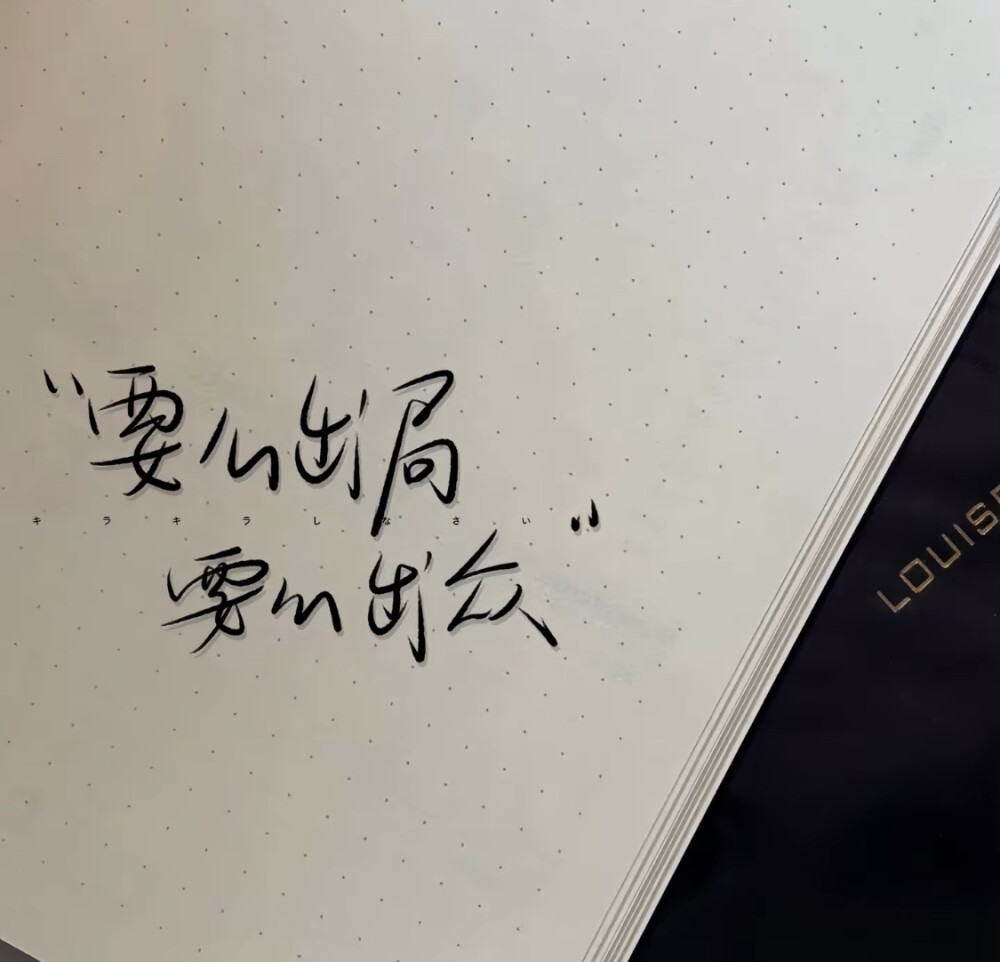 “要么出局
キラキラしなさい
要么出众”
LOUIS